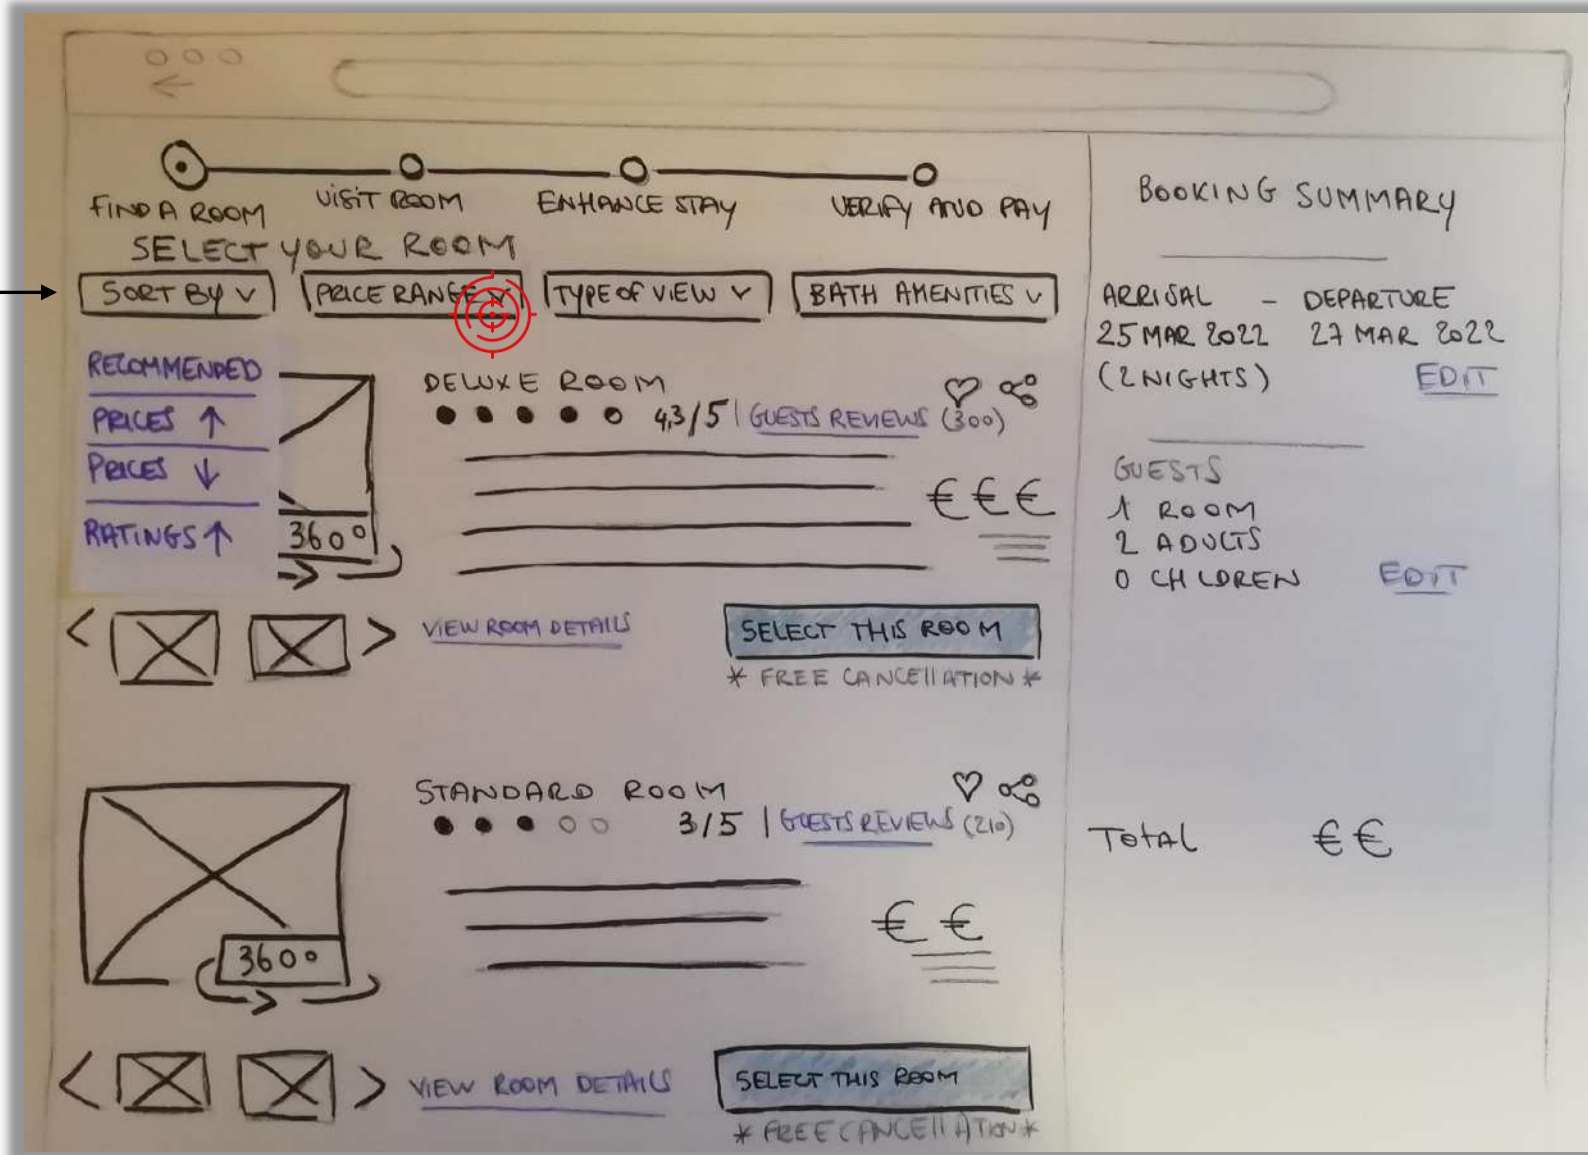 FIND A ROOM
VISIT ROOM
ENHANCE STAY
VERIFY AND PAY
SELECT YOUR ROOM
SORT BY
PRICE RANGE
TYPE OF VIEW
BATH AMENITIES
RECOMMENDED
PRICES ↑
PRICES ↓
RATINGS ↑
360°
DELUXE ROOM
4,3/5 | GUESTS REVIEWS (300)
€€€
VIEW ROOM DETAILS
SELECT THIS ROOM
* FREE CANCEllATION *
STANDARD ROOM
3/5 | GUESTS REVIEWS (210)
360°
€€
VIEW ROOM DETAILS
SELECT THIS ROOM
* FREE CANCEllATION *
BOOKING SUMMARY
ARRIVAL - DEPARTURE
25 MAR 2022 27 MAR 2022
(2 NIGHTS) EDIT
GUESTS
1 ROOM
2 ADULTS
0 CHLDREN EDIT
TOTAL €€